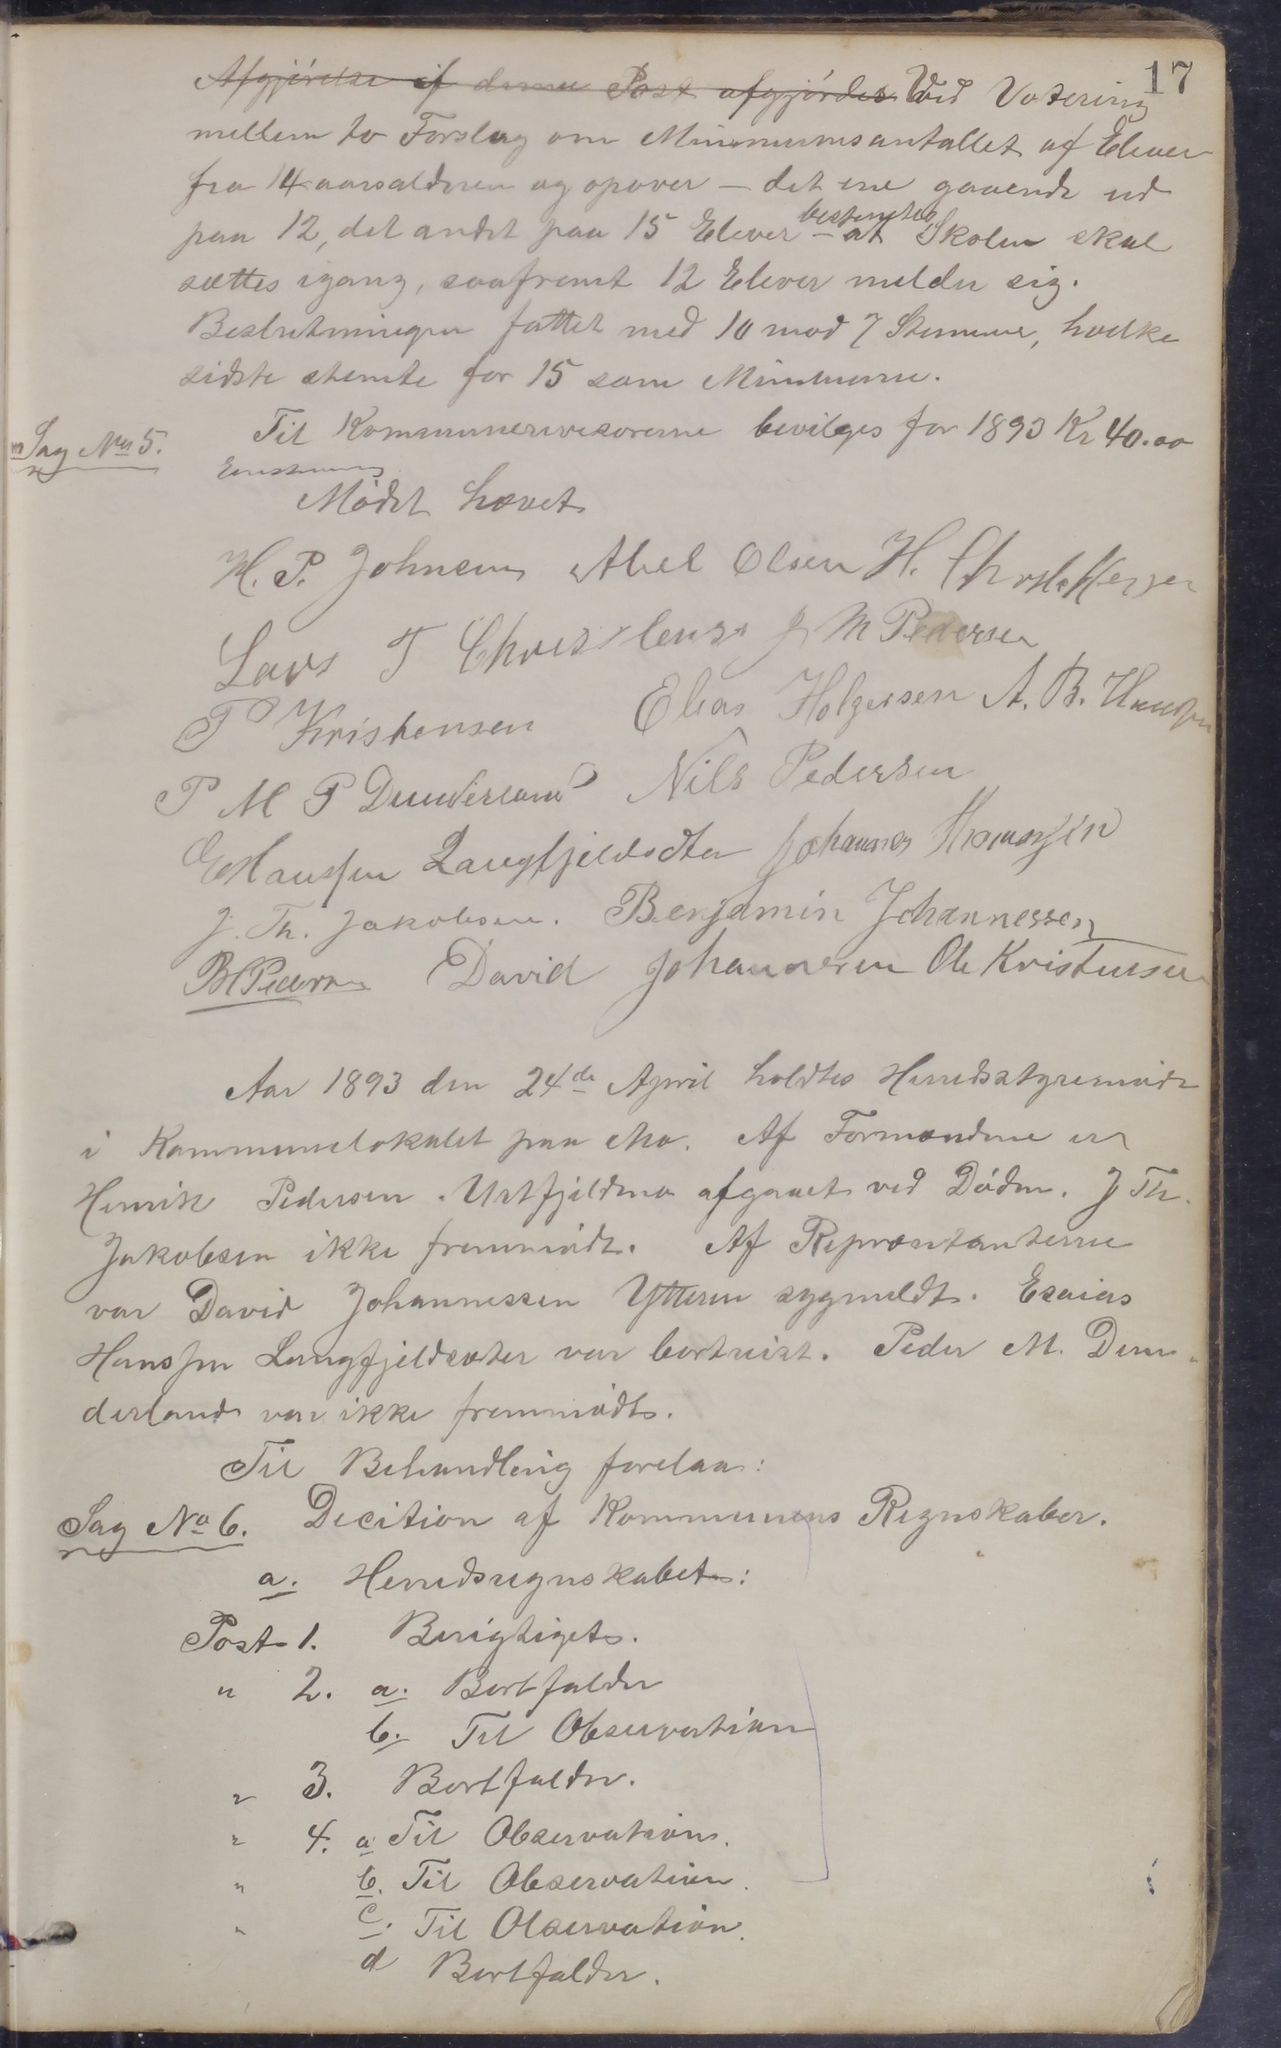 17
Afgjörelse af denne Post afgjördes Ved Votering
mellem to Forslag om Minimumsantallet af Elever
fra 14 aarsalderen og opover – det ene gaaende ud
paa 12, det andet paa 15 Elever – bestemtes at Skolen skal
sættes igang, saafremt 12 Elever melder sig.
Beslutningen fattet med 10 mod 7 Stemmer, hvilke
sidste stemte for 15 som Minimum.
Sag No 5. Til Kommunerevisorerne bevilges for 1893 Kr 40.00
Enstemmig
Mödet hævet
H. P. Johnsen Abel Olsen H. Christoffersen
Lars T Christensen J M Pedersen
P Kristensen Elias Holgersen A. B. Hanssen
P M P Dunderland Nils Pedersen
E Hanssen Langfjeldsæter Johannes Thomassen
J. Th. Jakobsen. Benjamin Johannessen
David Johannesen Ole Kristensen
Aar 1893 den 24de April holdtes Herredsstyremöde
i Kommunelokalet paa Mo. Af Formændene er
Henrik Pedersen Urtfjeldmo afgaaet ved Döden. J Th.
Jakobsen ikke fremmödt. Af Repræsentanterne
var David Johannessen Ytteren sygmeldt. Esaias
Hanssen Langfjeldsæter var bortreist. Peder M. Dun-
derland var ikke fremmödt.
Til Behandling forelaa:
Sag No 6. Decition af Kommunens Regnskaber.
a. Herredsregnskabet:
Post 1. Berigtiget.
" 2. a. Bortfalder
b. Til Observation
" 3. Bortfalder.
" 4. a Til Observation.
" b. Til Observation.
" c. Til Observation.
d Bortfalder.